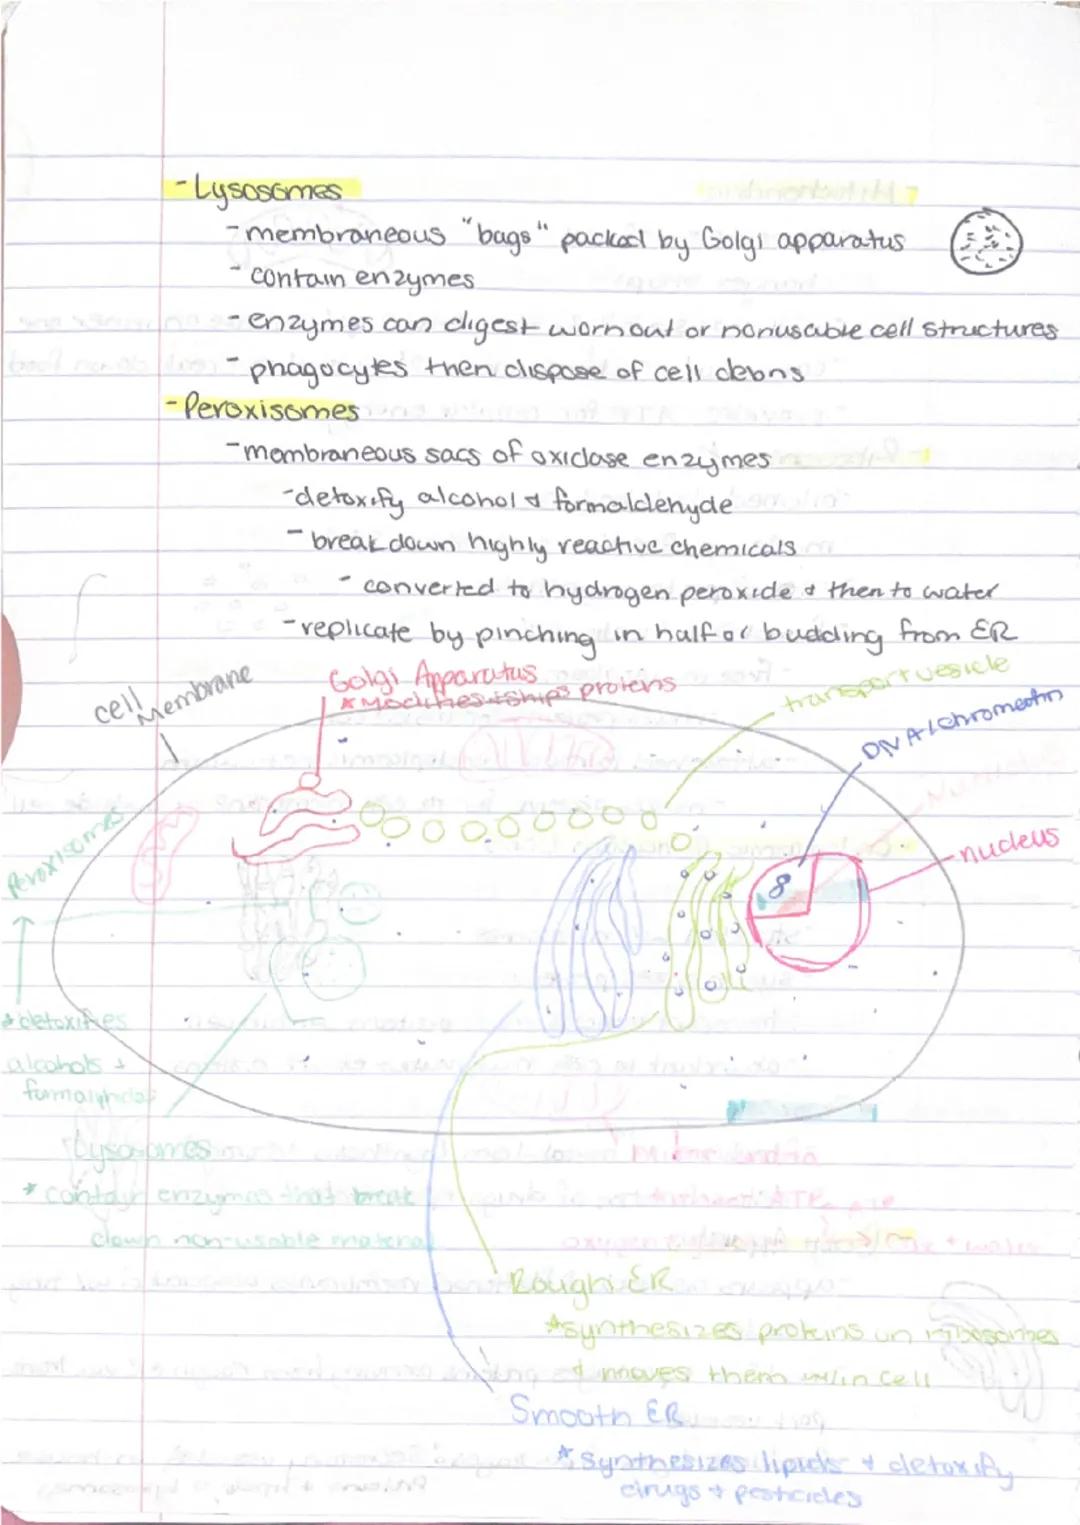 - Lysosomes
- membraneous "bags" packed by Golgi apparatus
- contain enzymes
- enzymes can digest worn out or nonusable cell structures
- phagocytes then dispose of cell debris
- Peroxisomes
- membraneous sacs of oxidase enzymes
- detoxify alcohol & formaldehyde
- break down highly reactive chemicals
- converted to hydrogen peroxide & then to water
- replicate by pinching in half or budding from ER
cell membrane
Golgi Apparatus
* Modifies + ships proteins
transport vesicle
DNA/chromeatin
nucleus
Peroxisomes
* detoxifies
alcohols +
Lysosomes
* contain enzymes that break
down non-usable material
Mitochondria
ATP
oxygen
+ water
Rough ER
* synthesizes proteins on ribosomes
& moves them w/in cell
Smooth ER
* Synthesizes lipids + detoxify
drugs + pesticides